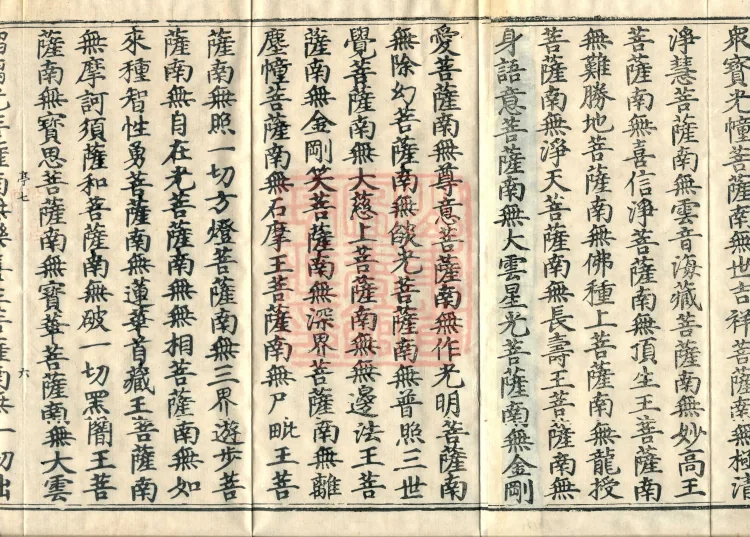 衆寳光幢菩薩南無世吉祥菩薩南無極清
淨慧菩薩南無雲音海藏菩薩南無妙高王
菩薩南無喜信淨菩薩南無頂生王菩薩南
無難勝地菩薩南無佛種上菩薩南無龍授
菩薩南無淨天菩薩南無長壽王菩薩南無
身語意菩薩南無大雲星光菩薩南無金剛
愛菩薩南無尊意菩薩南無作光明菩薩南
無除幻菩薩南無燄光菩薩南無普照三世
覺菩薩南無大慈上菩薩南無無邊法王菩
薩南無金剛笑菩薩南無深界菩薩南無離
塵幢菩薩南無石摩王菩薩南無尸毗王菩
薩南無照一切方燈菩薩南無三界遊步菩
薩南無自在光菩薩南無無相菩薩南無如
來種智性勇菩薩南無蓮華首藏王菩薩南
無摩訶須薩和菩薩南無破一切黑闇王菩
薩南無寳思菩薩南無寳華菩薩南無大雲